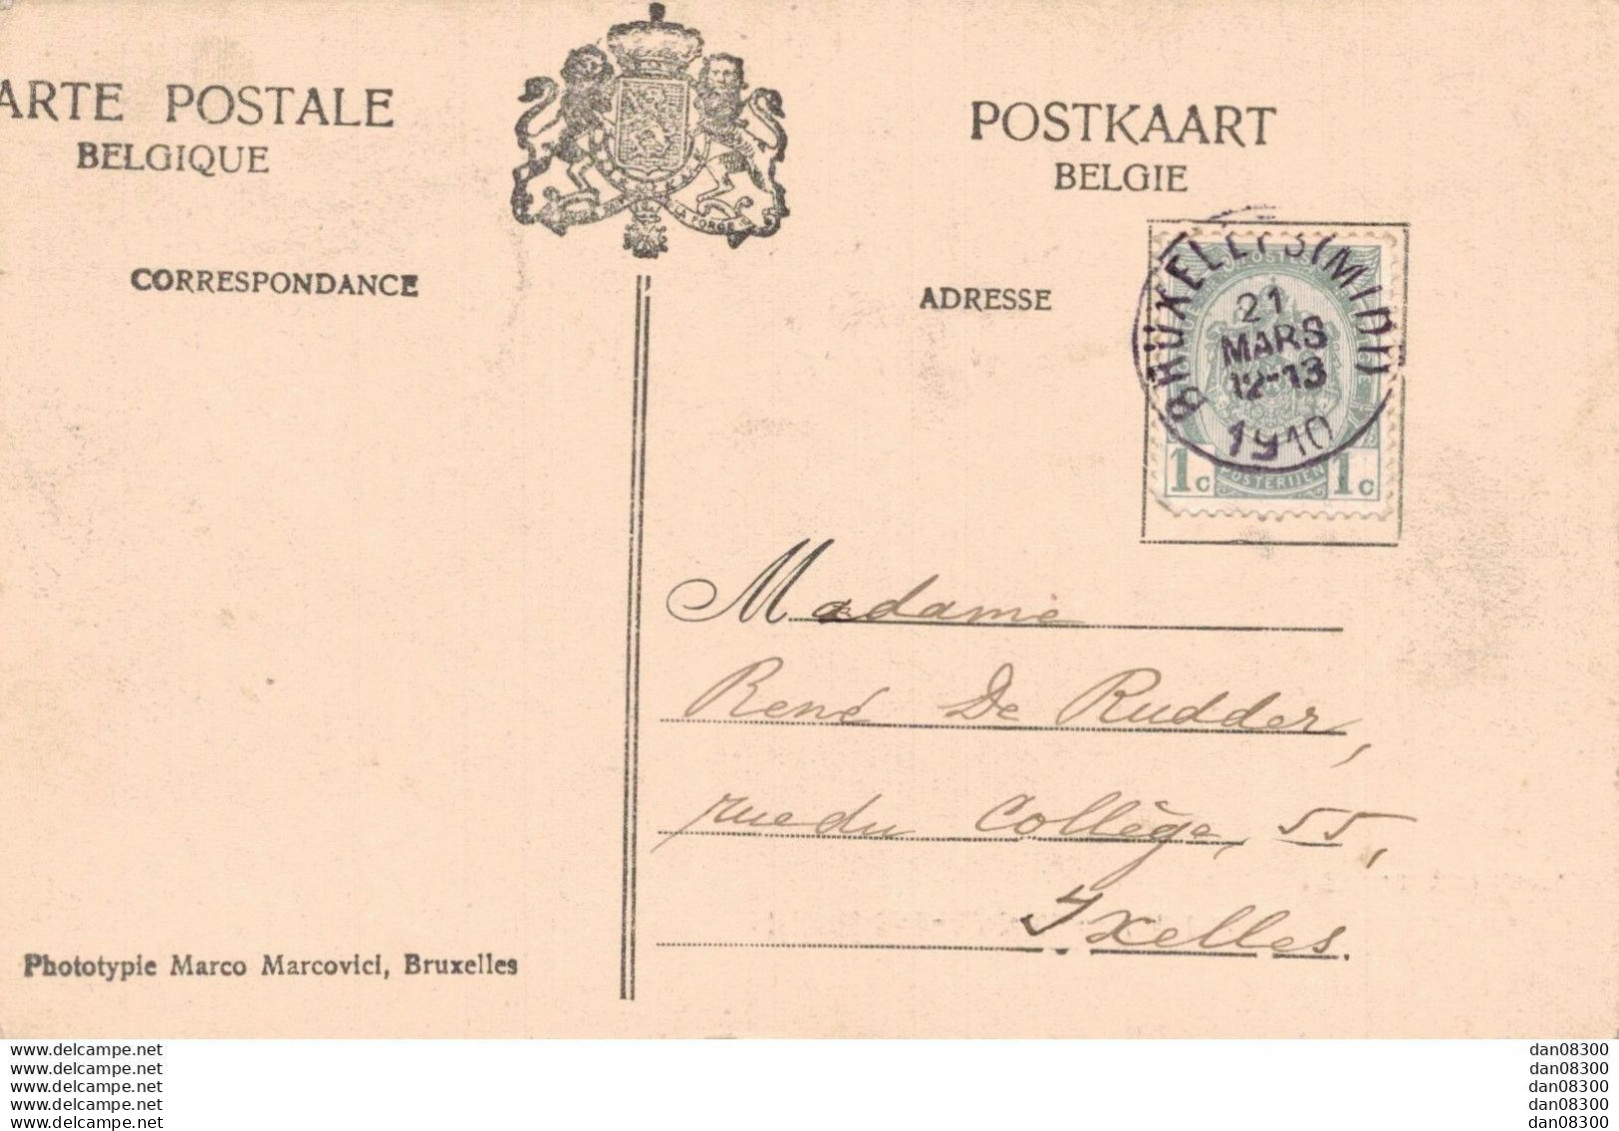 ARTE POSTALE
BELGIQUE
POSTKAART
BELGIE
CORRESPONDANCE
ADRESSE
BRUXELLES (MIDI)
21
MARS
12-13
1910
1c POSTERIJEN 1c
Madame
René De Rudder,
rue du Collège, 55,
Ixelles.
Phototypie Marco Marcovici, Bruxelles
www.delcampe.net
www.delcampe.net
www.delcampe.net
www.delcampe.net
www.delcampe.net
dan08300
dan08300
dan08300
dan08300
dan08300